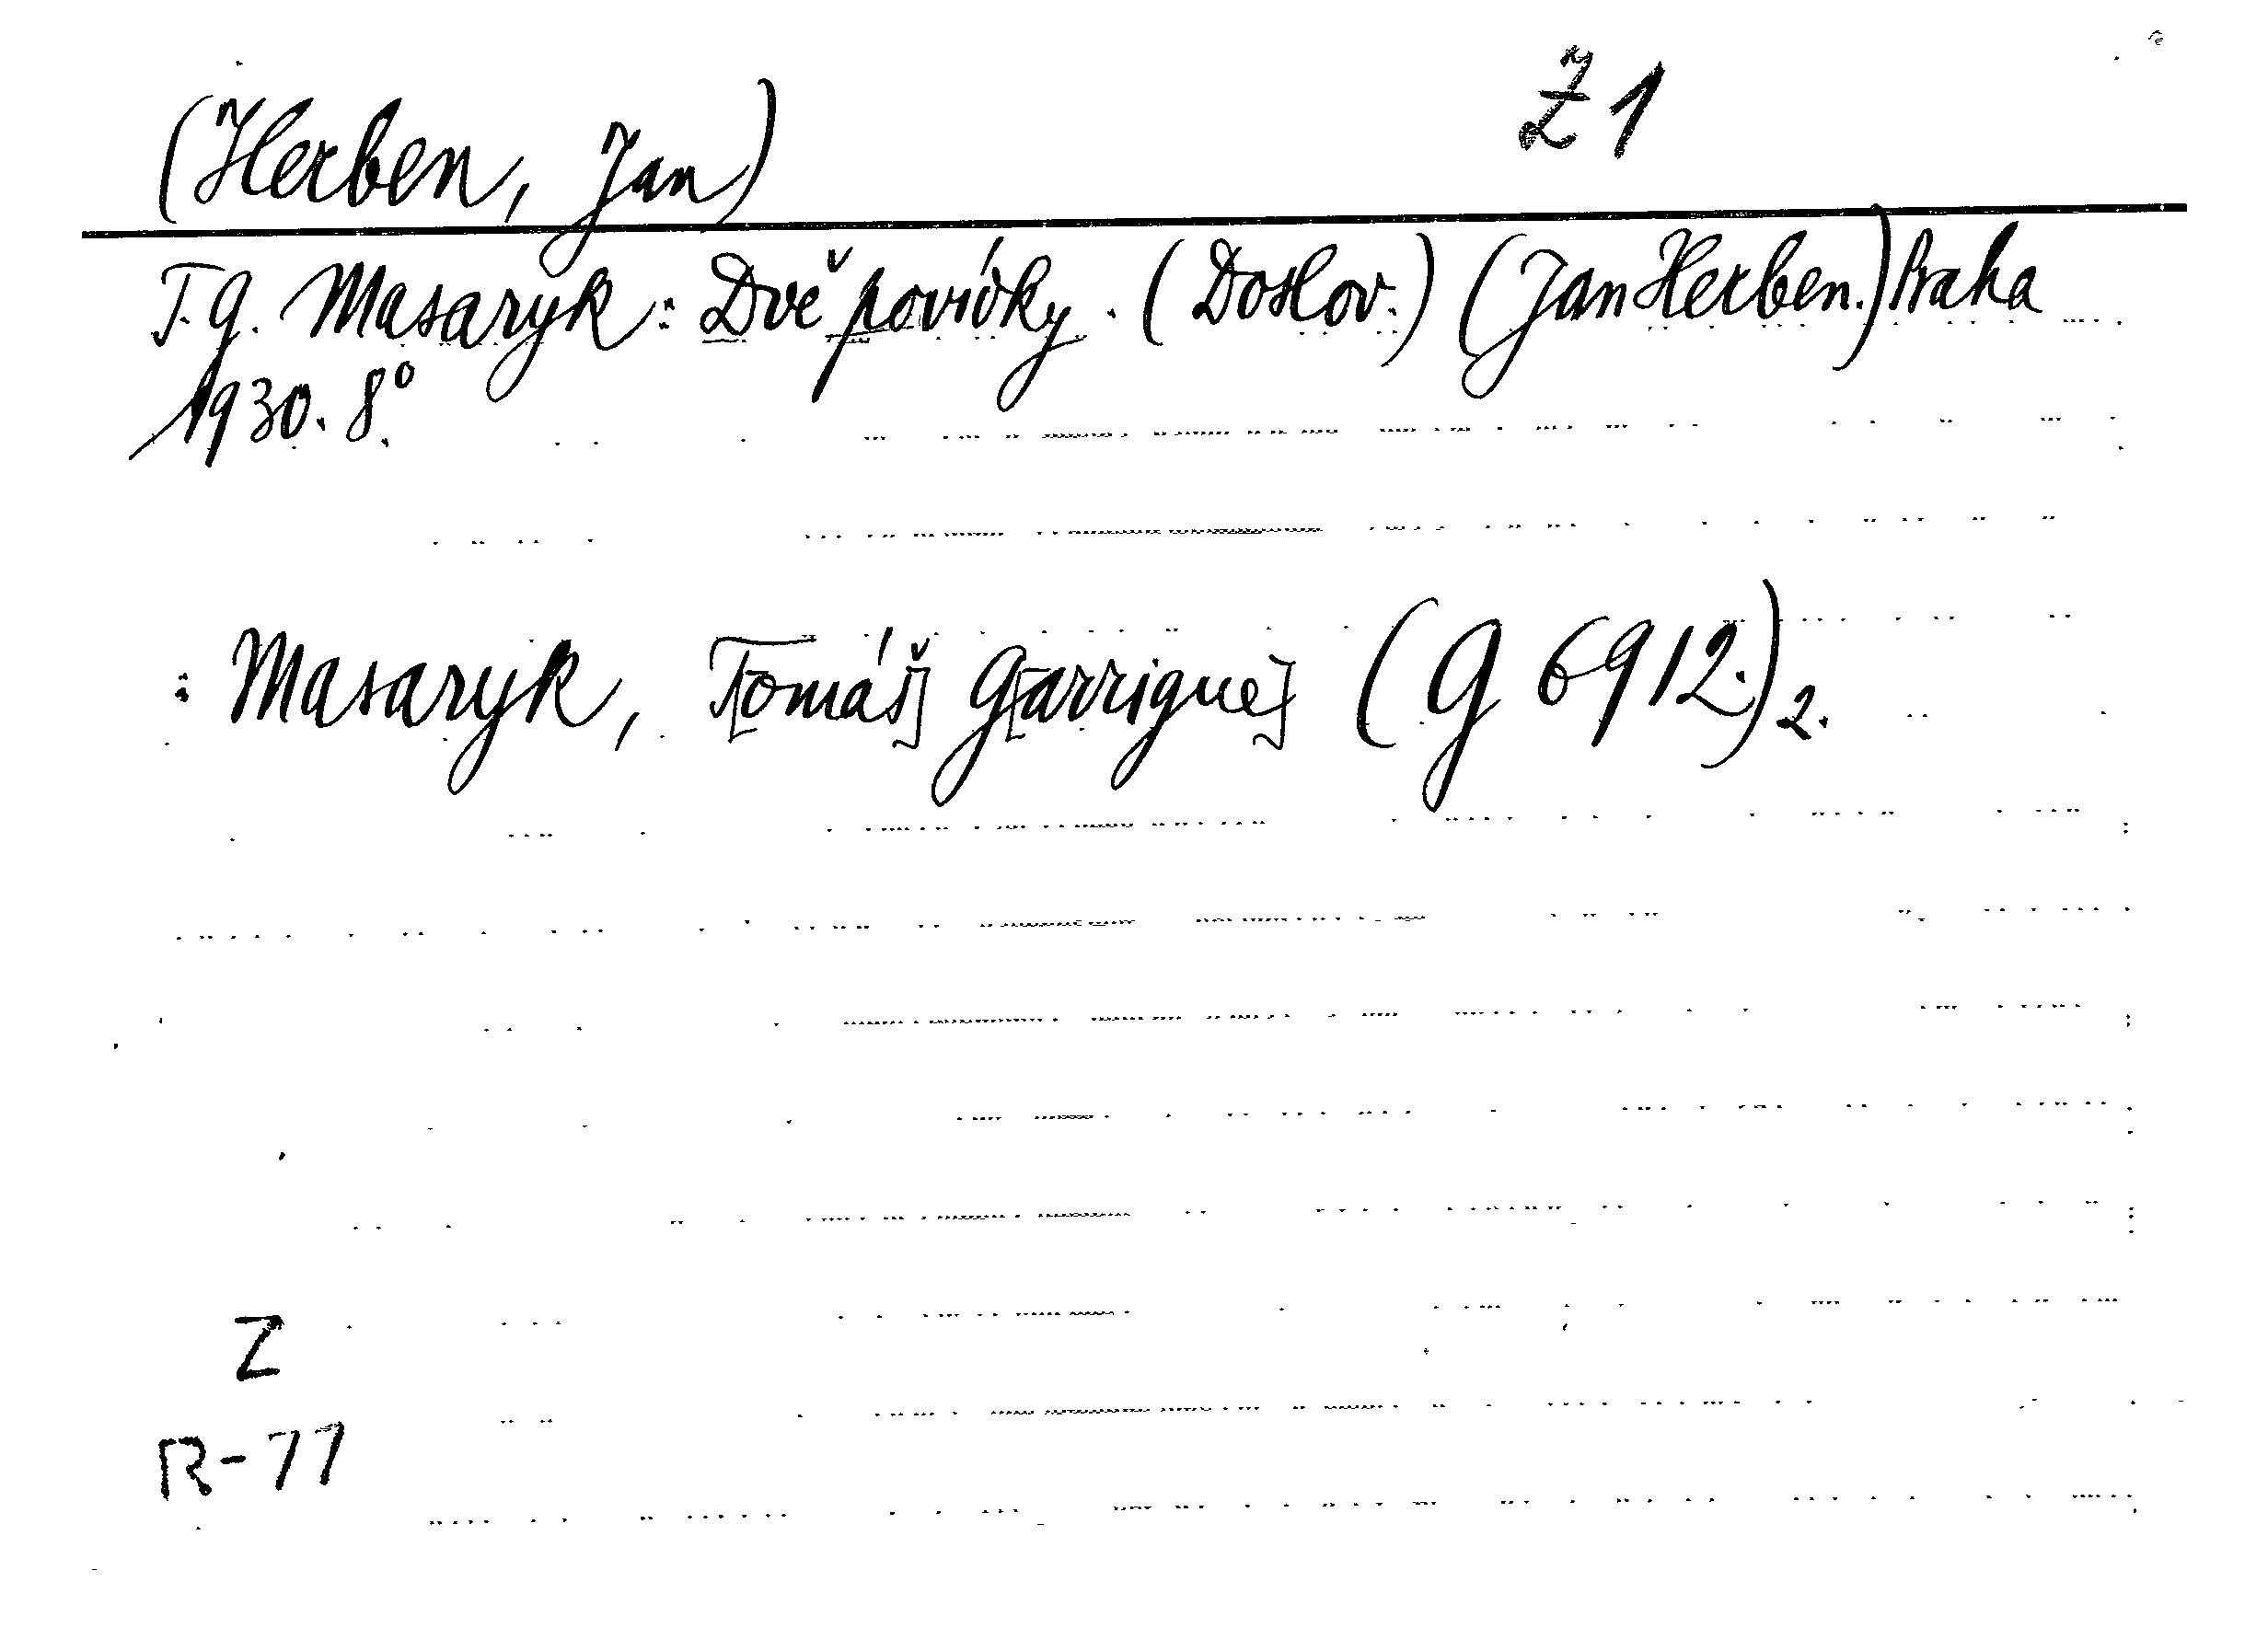 Z 1
(Herben, Jan)
T. G. Masaryk: Dvě povídky. (Doslov.) (Jan Herben.) Praha
1930. 8°.
: Masaryk, T[omáš] G[arrigue] (G 6912.)2.
Z
R-77